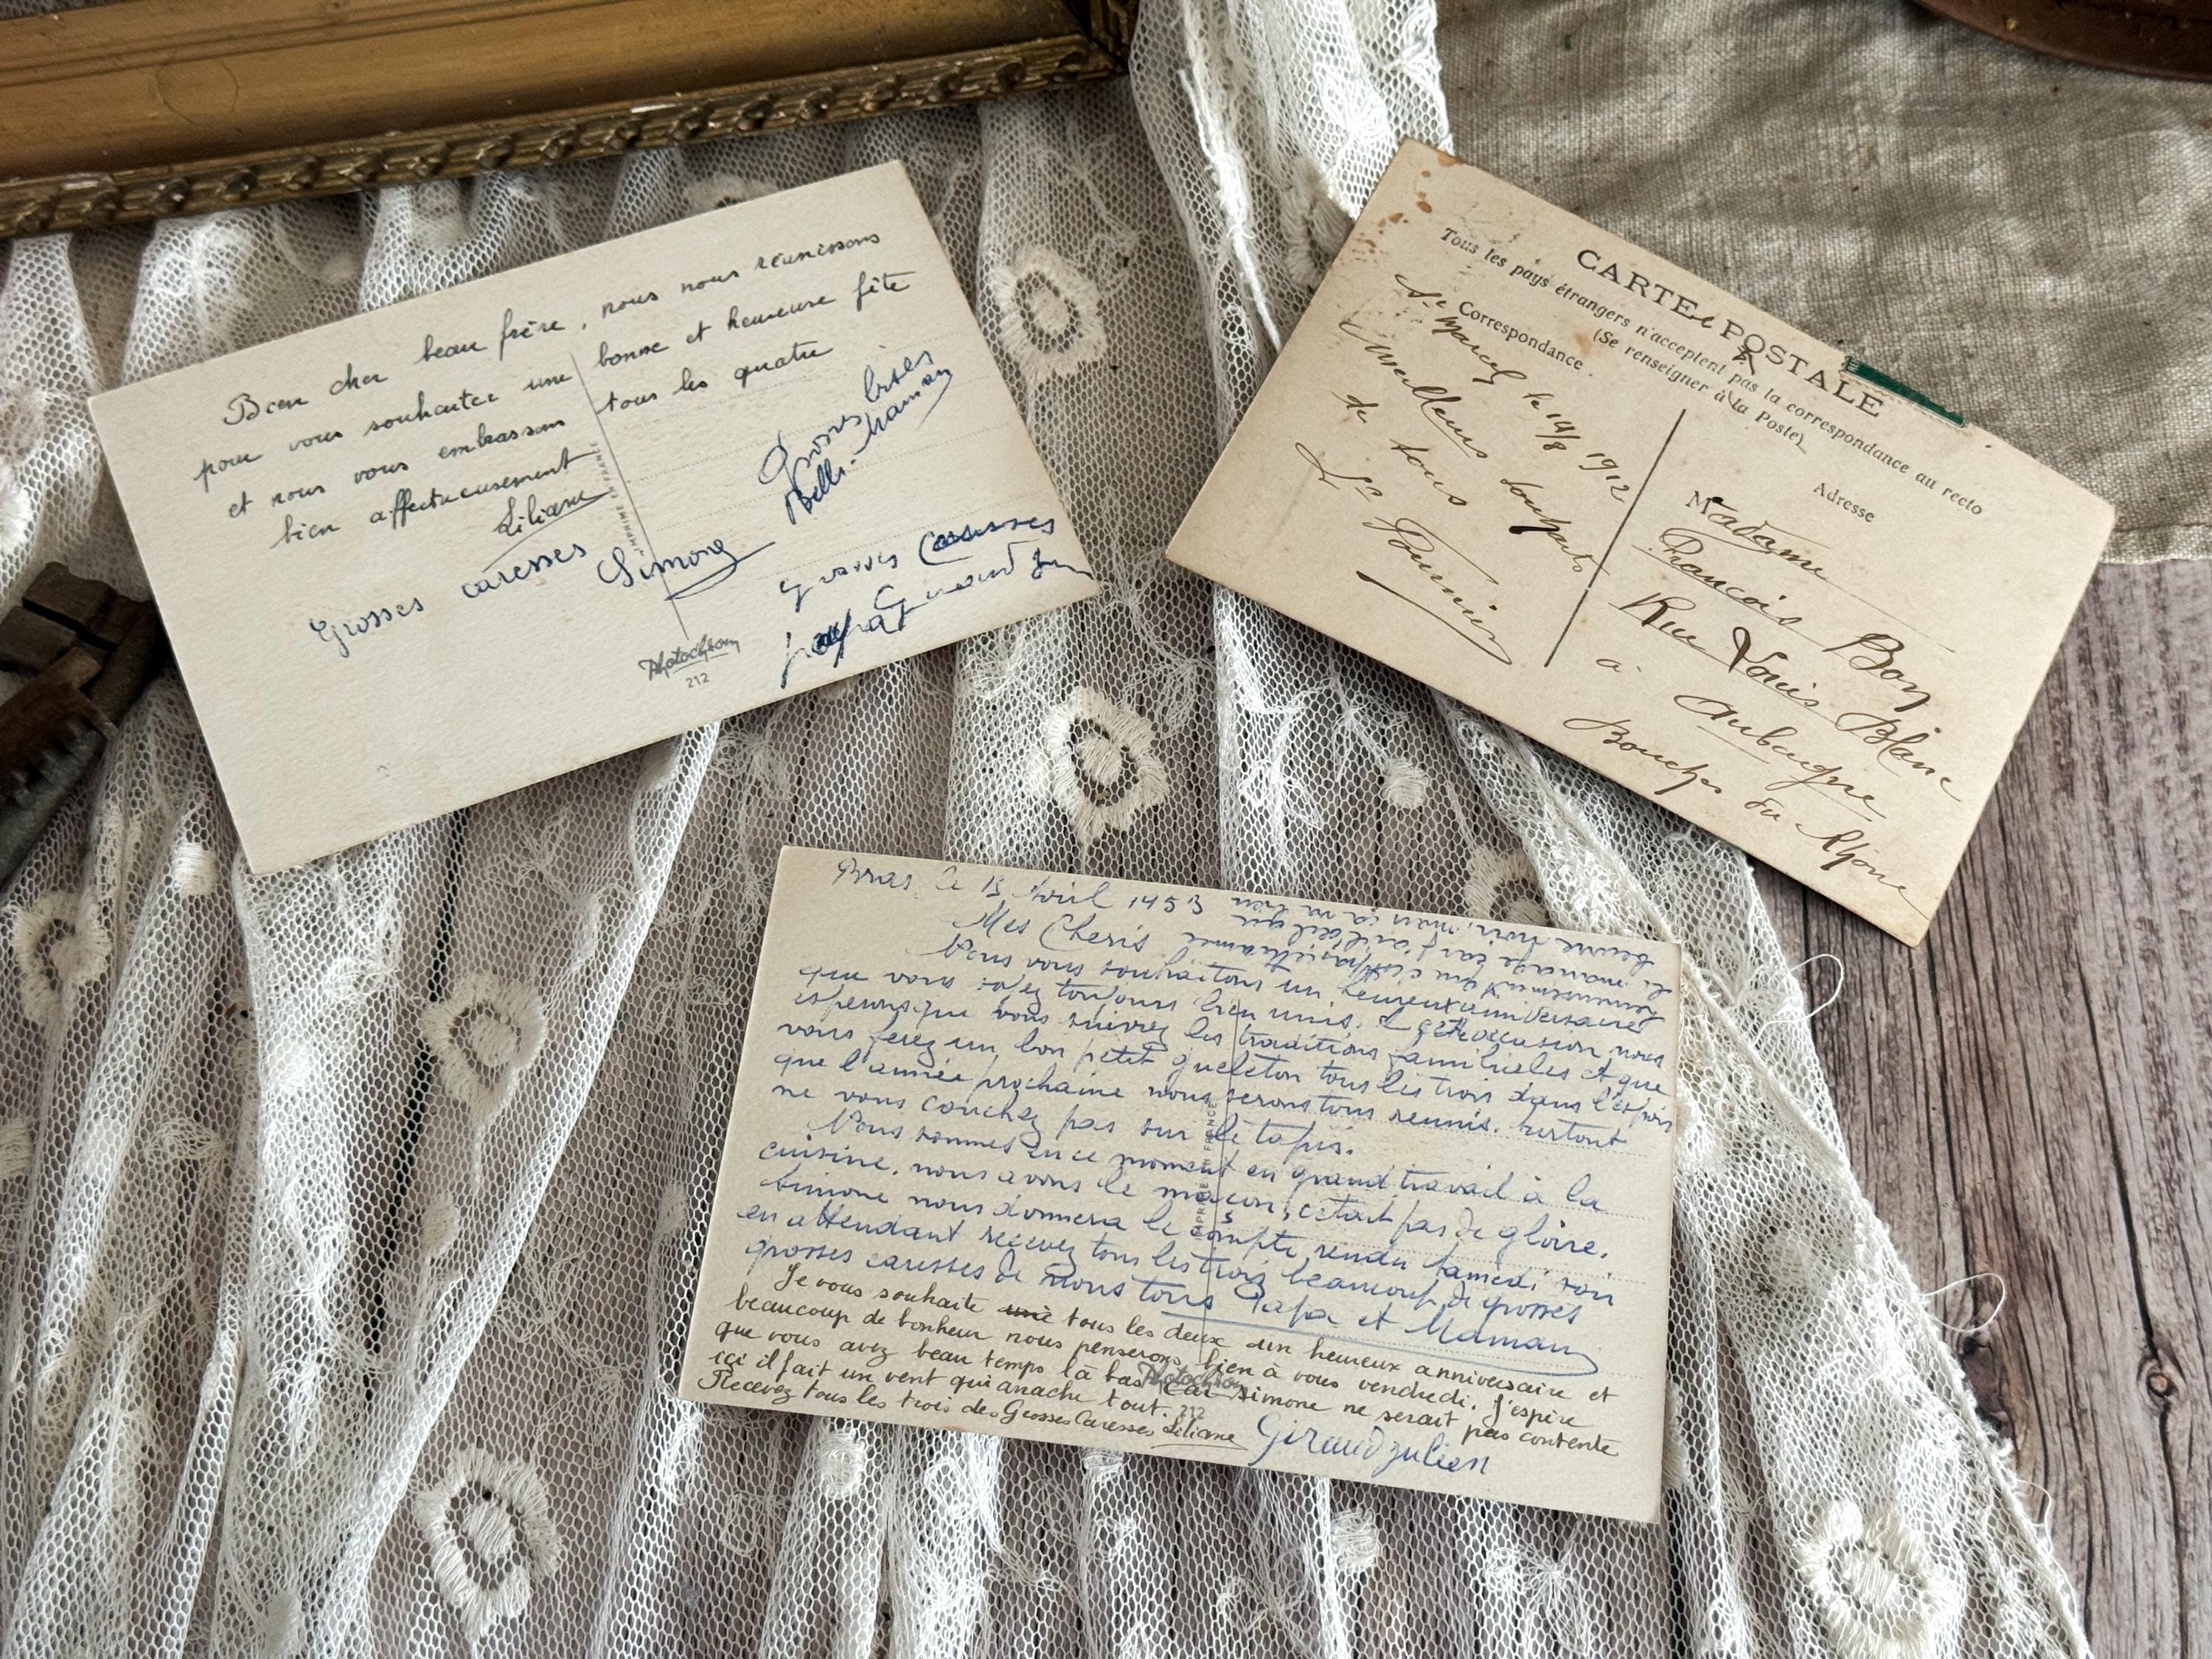 Bien cher beau frère, nous nous réunissons
pour vous souhaiter une bonne et heureuse fête
et nous vous embrassons tous les quatre
bien affectueusement
Liliane
Grosses caresses Simone
Grosses bises
Maman
grosses Caresses
papa Giraud
IMPRIMÉ EN FRANCE
Photochrom
212
CARTE POSTALE
Tous les pays étrangers n'acceptent pas la correspondance au recto
(Se renseigner à la Poste)
Correspondance
Adresse
St Marcel le 14/8 1912
Meilleurs souhaits
de tous
Fournier
Madame
François Bon
Rue Louis Blanc
à Aubagne
Bouches du Rhône
Bras le 15 Avril 1953
Mes Cheris
Nous vous souhaitons un heureux anniversaire
que vous soyez toujours bien unis. à cette occasion nous
esperons que vous suivrez les traditions familieles et que
vous ferez un bon petit gueleton tous les trois dans l'espoir
que l'année prochaine nous serons tous reunis. surtout
ne vous couchez pas sur le tapis.
Nous sommes en ce moment en grand travail à la
cuisine. nous avons le maçon, cetait pas de gloire.
Simone nous donnera le compte rendu samedi soir
en attendant recevez tous les trois beaucoup de grosses
grosses caresses de nous tous Papa et Maman
Je vous souhaite une tous les deux un heureux anniversaire et
beaucoup de bonheur nous penserons bien à vous vendredi. J'espère
que vous avez beau temps là bas car Simone ne serait pas contente
ici il fait un vent qui arrache tout.
Recevez tous les trois des Grosses Caresses Liliane
Giraud Julien
IMPRIMÉ EN FRANCE
Photochrom
212